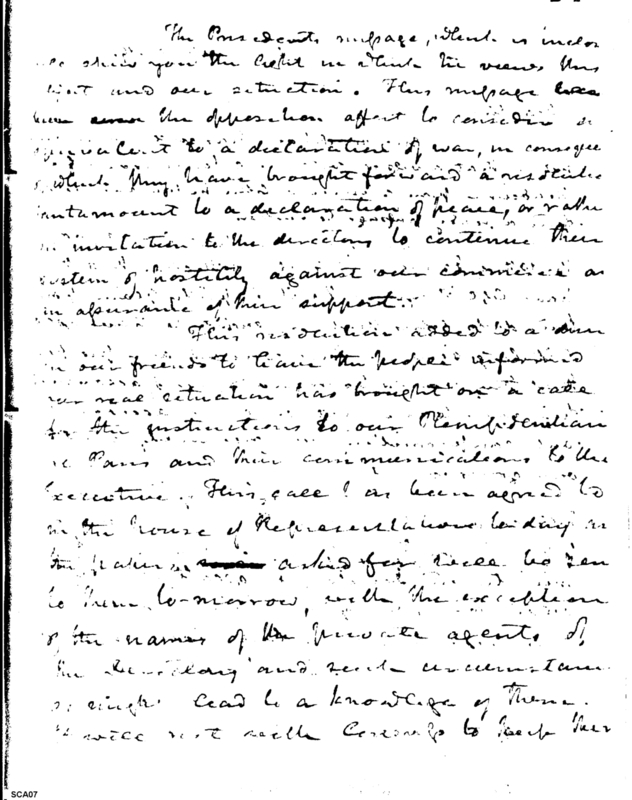 The Presidents message, which is inclos
show you the light in which he views this
and our situation. This message
the opposition affect to consider
to a declaration of war, in conseque
which they have brought forward a resolutio
antamount to a declaration of peace, or rathe
invitation to the directory to continue their
ystem of hostility against our commerce
an assurance of their support.
This resolution added to a
in our friends to have the people informed
real situation has brought on a call
for the instructions to our Plenipotentian
Paris and their communications to the
Executive. This call has been agreed to
in the house of Representatives to day
the papers asked for will be sen
to them to-morrow, with the exception
of the names of the private agents of
the Directory and such circumstan
might lead to a knowledge of them.
will not with Congress to keep
SCA07